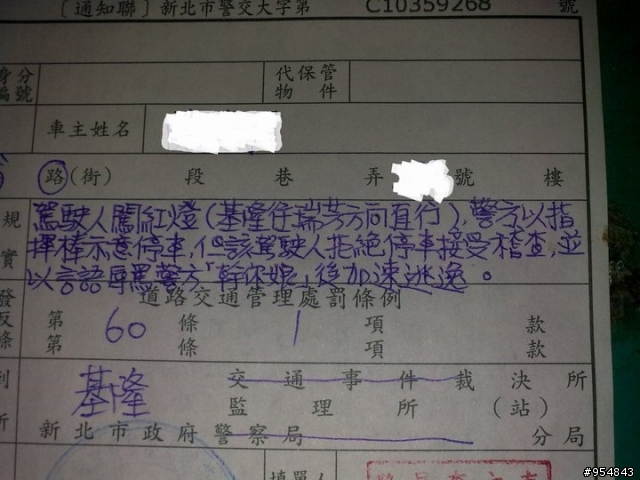 〔通知聯〕新北市警交大字第 C10359268 號
身分
編號
代保管
物件
車主姓名
路(街) 段 巷 弄 號 樓
規
實
駕駛人闖紅燈(基隆往瑞芳方向直行),警方以指
揮棒示意停車,但該駕駛人拒絕停車接受稽查,並
以言語辱罵警方「幹你娘」後加速逃逸。
發
反
條
道路交通管理處罰條例
第 60 條 1 項 款
第 條 項 款
到
所
基隆
交通事件裁決所
監理所(站)
新北市政府警察局 分局
填單人
#954843